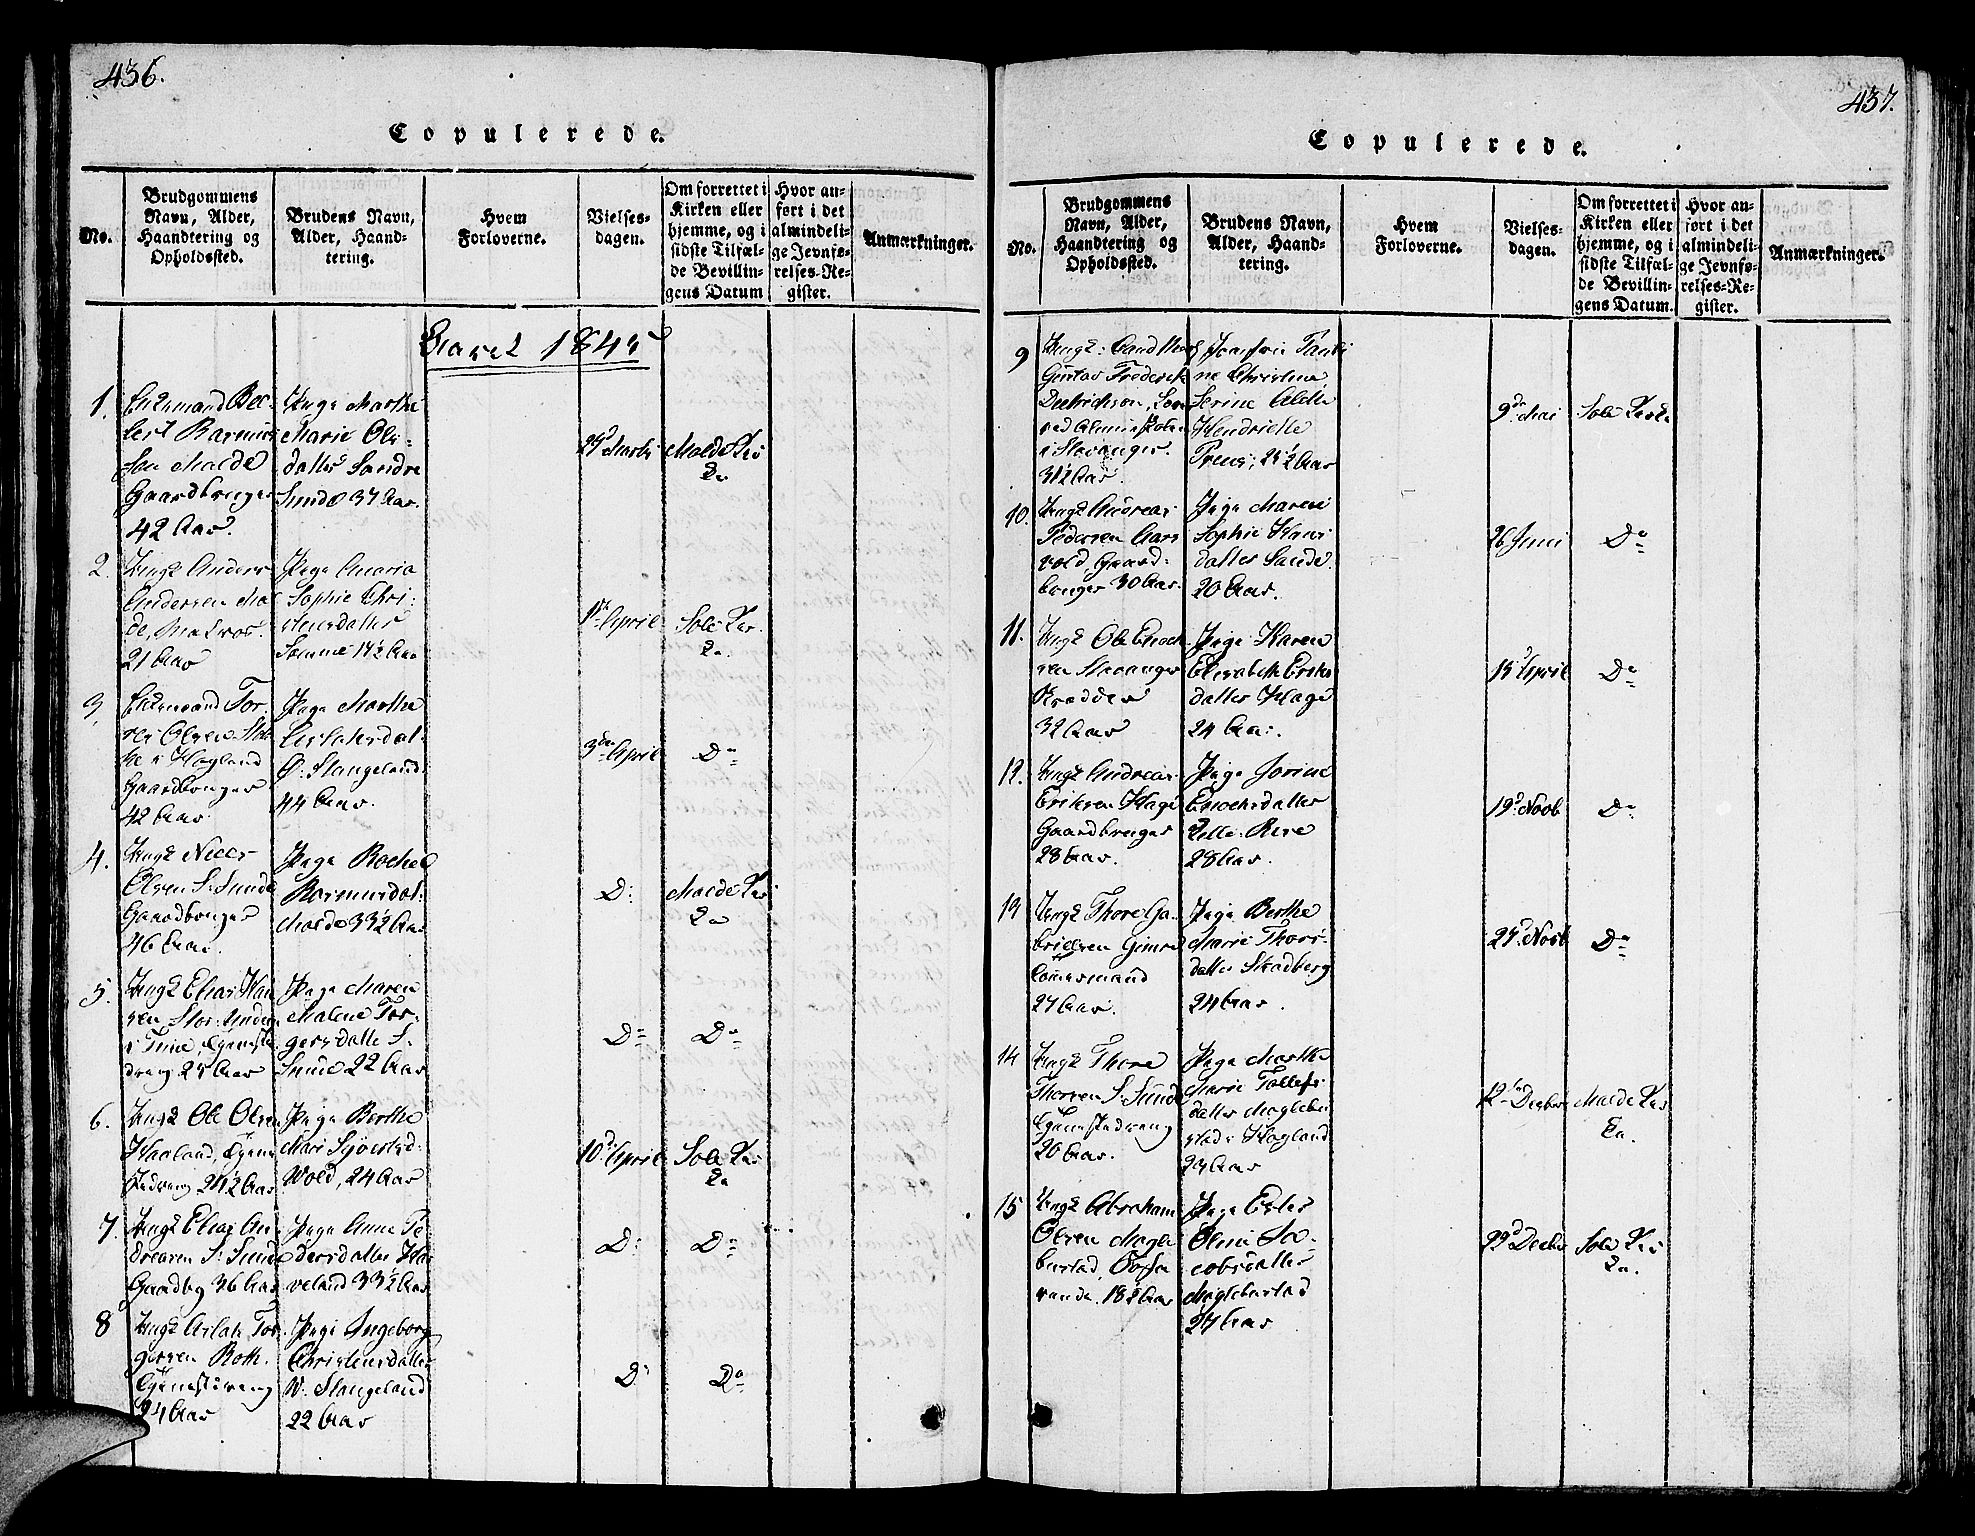 436.
Copulerede.
No.
Brudgommens
Navn, Alder,
Haandtering og
Opholdssted.
Brudens Navn,
Alder, Haand-
tering.
Hvem
Forloverne.
Vielses-
dagen.
Om forrettet i
Kirken eller
hjemme, og i
sidste Tilfæl-
de Bevillin-
gens Datum
Hvor an-
ført i det
almindeli-
ge Jevnfø-
relses-Re-
gister.
Anmærkninger.
Aaret 184
1.
Enkemand
Malde
Gaardbruger
42 Aar.
Pige Marthe
Marie Ols-
datter Søndre
Sunde 37 Aar.
Malde Kir
ke
2.
Ungk Anders
Andersen Mal
de, Matros.
21 Aar
Pige Maria
Sophie Chri-
stensdatter
Sømme
1ste April
Sole Kir
ke
3.
Enkemand Tor
Olsen
Hogland
Gaardbruger
42 Aar
Pige Marthe
Stangeland
44 Aar.
3die April
Do
4.
Ungk Niels
Olsen S: Sunde
Gaardbruger
46 Aar.
Pige Rachel
Rasmusdat:
Malde 33½ Aar
Do
Malde Kir
ke
5.
Ungk Elias Han
sen
Pige Maren
Malene Tor-
gersdatter S.
Sunde 22 Aar
Do
Do
6.
Ungk Ole Olsen
Haaland, Tjene
stedreng
Pige Berthe
Marie
Wold, 24 Aar
10de April
Sole Kir
ke
7.
Ungk Elias An
dreasen S: Sunde
Gaardbg 36 Aar
Pige Anne Pe
dersdatter Ha
veland 33½ Aar
Do
Do
8
Ungk Aslak Tor
gersen Roth.
Tjenestedreng
24 Aar
Pige Ingeborg
Christensdatter
N: Stangeland
22 Aar
Do
Do
437.
Copulerede.
No.
Brudgommens
Navn, Alder,
Haandtering og
Opholdssted.
Brudens Navn,
Alder, Haand-
tering.
Hvem
Forloverne.
Vielses-
dagen.
Om forrettet i
Kirken eller
hjemme, og i
sidste Tilfæl-
de Bevillin-
gens Datum.
Hvor an-
ført i det
almindeli-
ge Jevnfø-
relses-Re-
gister.
Anmærkninger.
9
Ungk:
Gustav Frederik
Dietrichson,
i Stavanger.
31½ Aar.
Jomfrue Pauli
ne Christine
Serine Aletta
Hendriette
9de Mai
Sole Kirke
10.
Ungk Andreas
Pedersen Aars
vold, Gaard-
bruger 30 Aar.
Pige Maren
Sophie Hans
datter Sande.
20 Aar.
26 Juni
Do
11.
Ungk Ole Enoch
sen Stavanger
Skrædder
32 Aar
Pige Karen
Elisabeth Eriks
datter Hage
24 Aar.
April
Do
12.
Ungk Andreas
Eriksen Hage
Gaardbruger
28 Aar.
Pige Serine
Enochsdatter
Lille: Rege
28 Aar.
19de Novb
Do
13
Ungk Thore Ga-
brielsen Gimre
Lousmand
27 Aar.
Pige Berthe
Marie Thors-
datter Skadberg
24 Aar.
27de Novb
Do
14
Ungk Thore
Thorsen S: Sunde
Tjenestedreng
26 Aar.
Pige Marthe
Marie Tollefs-
datter Mæglebu
stad i Hogland
12te Decbr
Malde Kir
ke.
15
Ungk Abraham
Olsen Mægle
bustad,
Pige Ester
Oline Ja-
cobsdatter
Mæglebustad
27 Aar
29de Decbr
Sole Kir
ke.